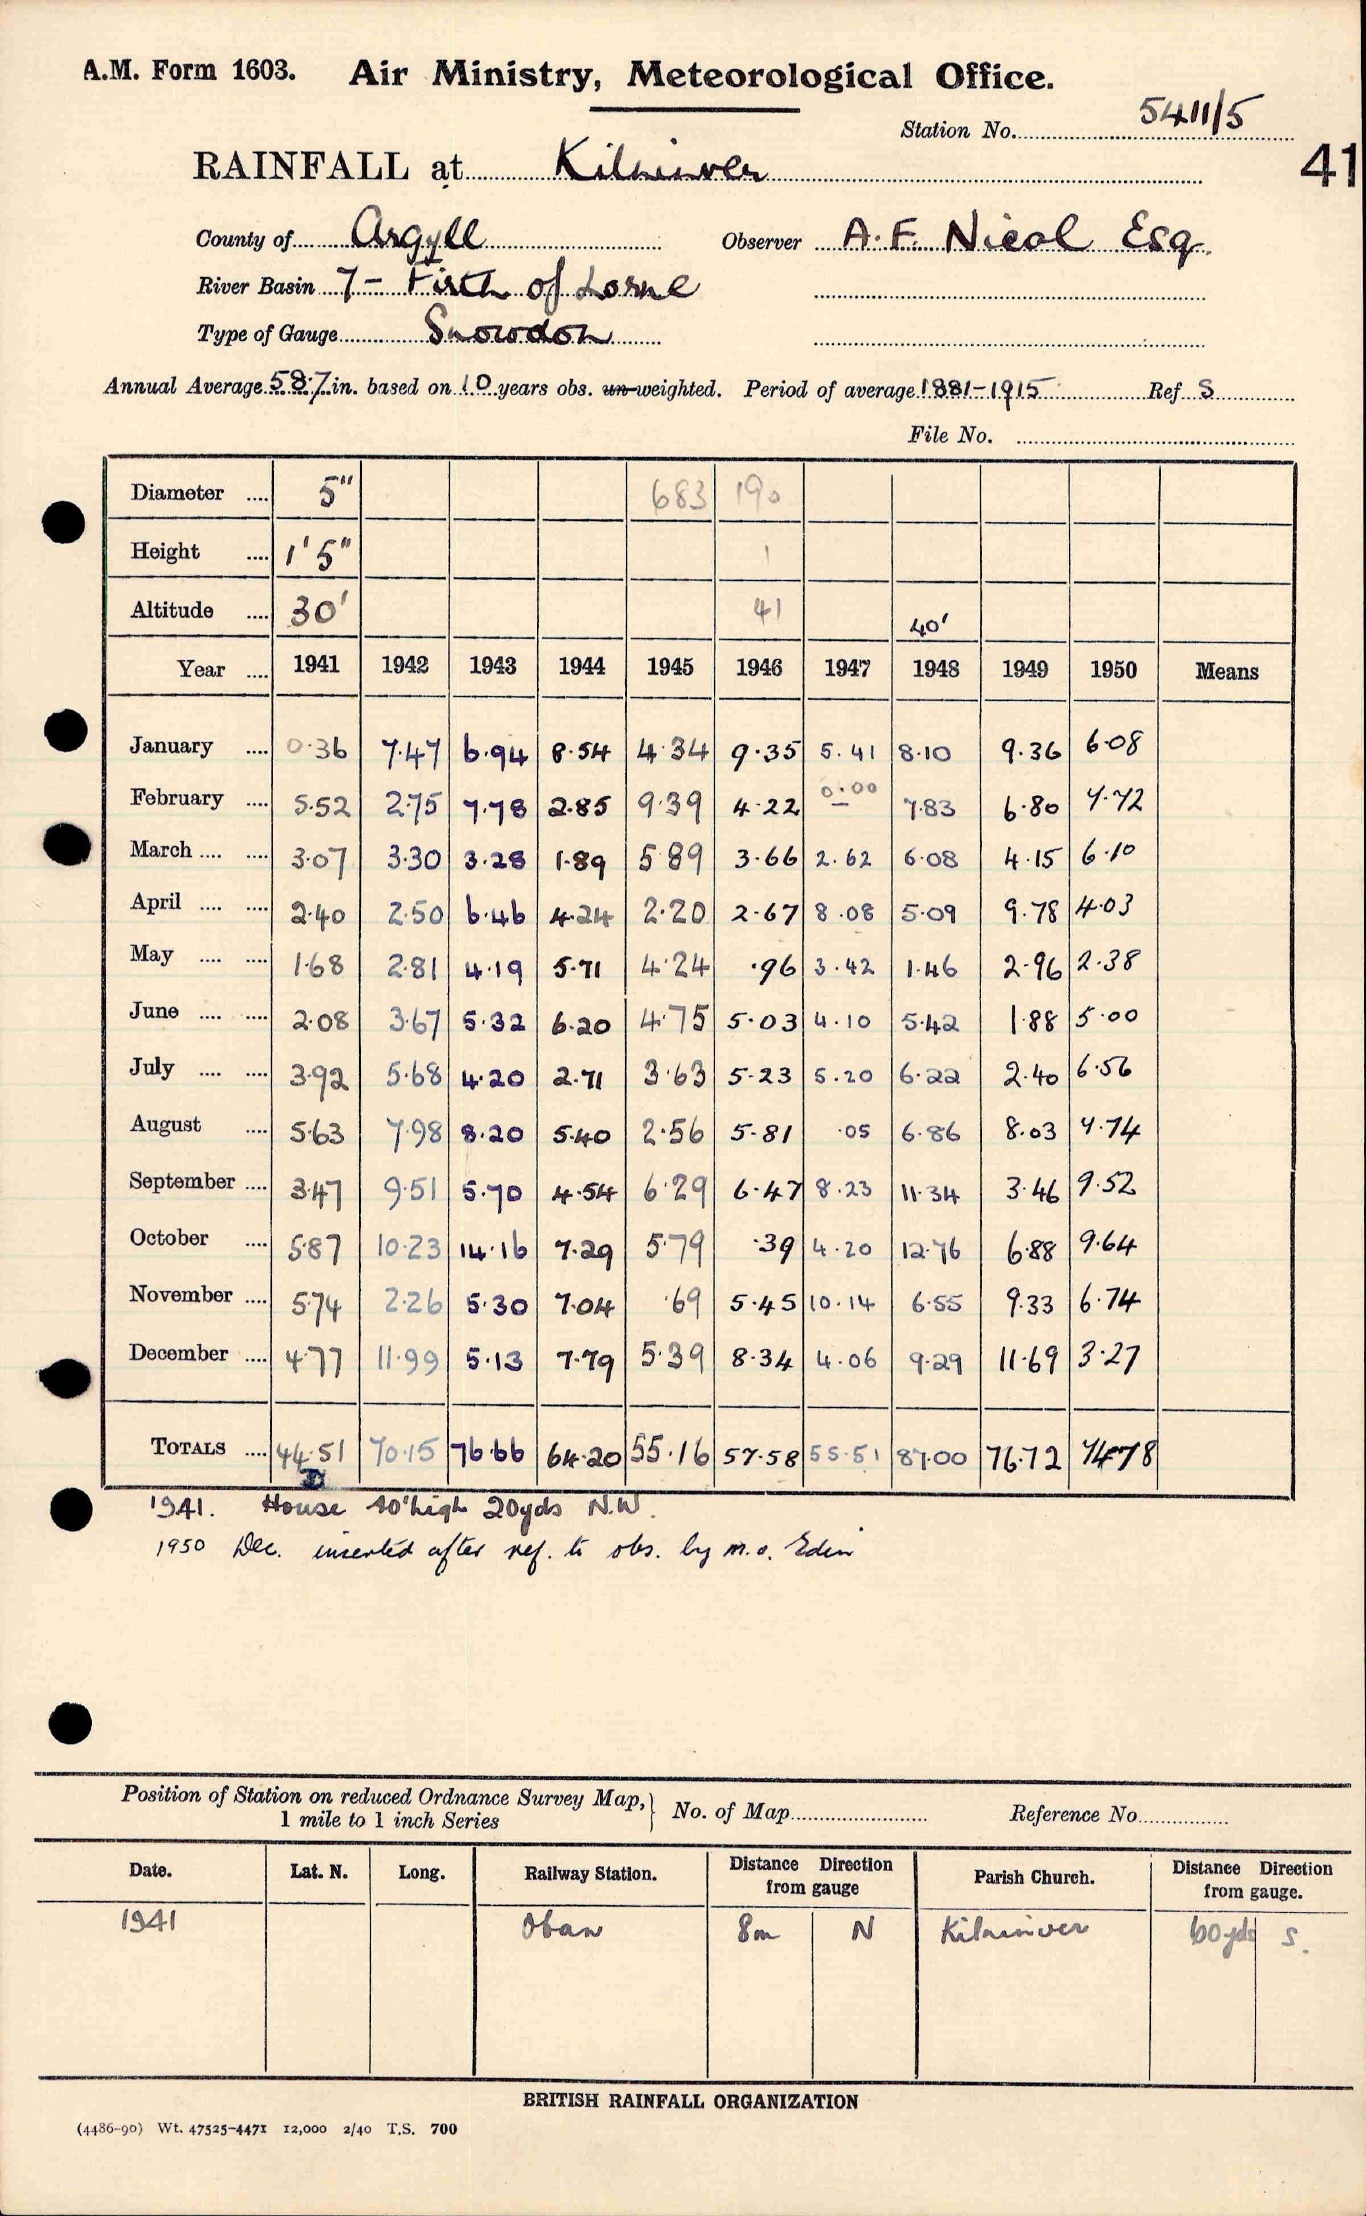 A.M. Form 1603. Air Ministry, Meteorological Office.
Station No. 5411/5
41
RAINFALL at Kilninver
County of Argyll Observer A. F. Nicol Esq.
River Basin 7 - Firth of Lorne
Type of Gauge Snowdon
Annual Average 58.7 in. based on 10 years obs. un-weighted. Period of average 1881-1915 Ref S
File No.
Diameter .... 5" 683 190
Height .... 1' 5" 1
Altitude .... 30' 41 40'
Year .... 1941 1942 1943 1944 1945 1946 1947 1948 1949 1950 Means
January .... 0.36 7.47 6.94 8.54 4.34 9.35 5.41 8.10 9.36 6.08
February .... 5.52 2.75 7.78 2.85 9.39 4.22 0.00 7.83 6.80 7.72
March .... .... 3.07 3.30 3.28 1.89 5.89 3.66 2.62 6.08 4.15 6.10
April .... .... 2.40 2.50 6.46 4.24 2.20 2.67 8.08 5.09 9.78 4.03
May .... .... 1.68 2.81 4.19 5.71 4.24 .96 3.42 1.46 2.96 2.38
June .... .... 2.08 3.67 5.32 6.20 4.75 5.03 4.10 5.42 1.88 5.00
July .... .... 3.92 5.68 4.20 2.71 3.63 5.23 5.20 6.22 2.40 6.56
August .... 5.63 7.98 8.20 5.40 2.56 5.81 .05 6.86 8.03 7.74
September .... 3.47 9.51 5.70 4.54 6.29 6.47 8.23 11.34 3.46 9.52
October .... 5.87 10.23 14.16 7.29 5.79 .39 4.20 12.76 6.88 9.64
November .... 5.74 2.26 5.30 7.04 .69 5.45 10.14 6.55 9.33 6.74
December .... 4.77 11.99 5.13 7.79 5.39 8.34 4.06 9.29 11.69 3.27
TOTALS .... 44.51 70.15 76.66 64.20 55.16 57.58 55.51 87.00 76.72 74.78
1941. House 40' high 20yds N.W.
1950 Dec. inserted after ref. to obs. by M.O. Edin
Position of Station on reduced Ordnance Survey Map, } No. of Map Reference No.
1 mile to 1 inch Series
Date. Lat. N. Long. Railway Station. Distance Direction from gauge Parish Church. Distance Direction from gauge.
1941 Oban 8m N Kilninver 60yds S.
BRITISH RAINFALL ORGANIZATION
(4486-90) Wt. 47525-4471 12,000 2/40 T.S. 700